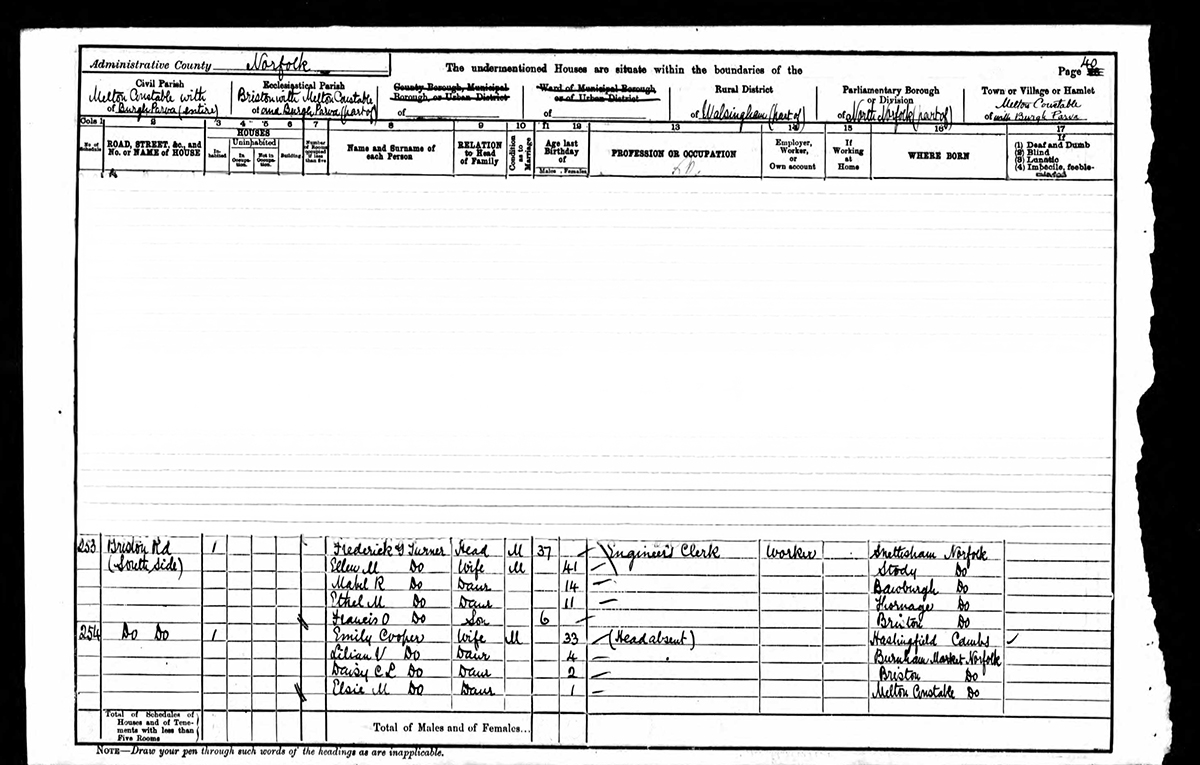 Administrative County Norfolk
The undermentioned Houses are situate within the boundaries of the
Page 40
Civil Parish
of Melton Constable with Burgh Parva (entire)
Ecclesiastical Parish
of Briston with Melton Constable and Burgh Parva (part of)
County Borough, Municipal Borough, or Urban District
of
Ward of Municipal Borough or of Urban District
of
Rural District
of Walsingham (part of)
Parliamentary Borough or Division
of North Norfolk (part of)
Town or Village or Hamlet
of Melton Constable with Burgh Parva
Cols 1 2 3 4 5 6 7 8 9 10 11 12 13 14 15 16 17
No. of Schedule
ROAD, STREET, &c., and No. or NAME of HOUSE
HOUSES
In-habited
Uninhabited
In Occupa-tion.
Not in Occupa-tion.
Building
Number of Rooms occupied if less than five
Name and Surname of each Person
RELATION to Head of Family
Condition as to Marriage
Age last Birthday of
Males Females
PROFESSION OR OCCUPATION
Employer, Worker, or Own account
If Working at Home
WHERE BORN
If
(1) Deaf and Dumb
(2) Blind
(3) Lunatic
(4) Imbecile, feeble-minded
253 Briston Rd 1 Frederick G Turner Head M 37 Engineer's Clerk Worker Snettisham Norfolk
(South Side) Ellen M Do Wife M 41 Stody Do
Mabel R Do Daur 14 Bawburgh Do
Ethel M Do Daur 11 Thornage Do
Francis O Do Son 6 Briston Do
254 Do Do 1 Emily Cooper Wife M 33 (Head absent) Haslingfield Cambs
Lilian V Do Daur 4 Burnham Market Norfolk
Daisy C L Do Daur 2 Briston Do
Elsie M Do Daur 1 Melton Constable Do
Total of Schedules of Houses and of Tene-ments with less than Five Rooms
Total of Males and of Females...
NOTE—Draw your pen through such words of the headings as are inapplicable.